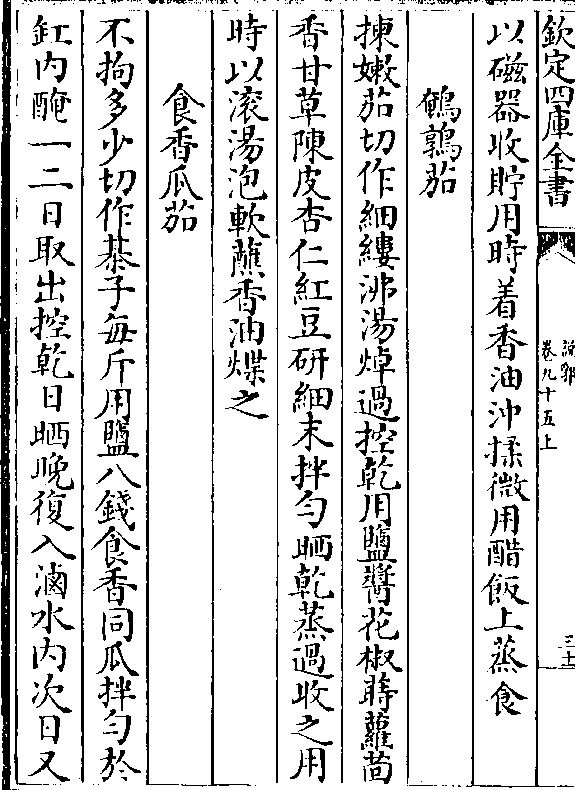 欽定四庫全書
說郛
卷九十五上
三十
以磁器收貯用時着香油沖揉微用醋飯上蒸食
鵪鶉茄
揀嫩茄切作細縷沸湯焯過控乾用鹽醬花椒蒔蘿茴
香甘草陳皮杏仁紅豆研細末拌勻晒乾蒸過收之用
時以滚湯泡軟蘸香油煠之
食香瓜茄
不拘多少切作棊子每斤用鹽八錢食香同瓜拌勻於
缸内醃一二日取出控乾日晒晚復入滷水内次日又